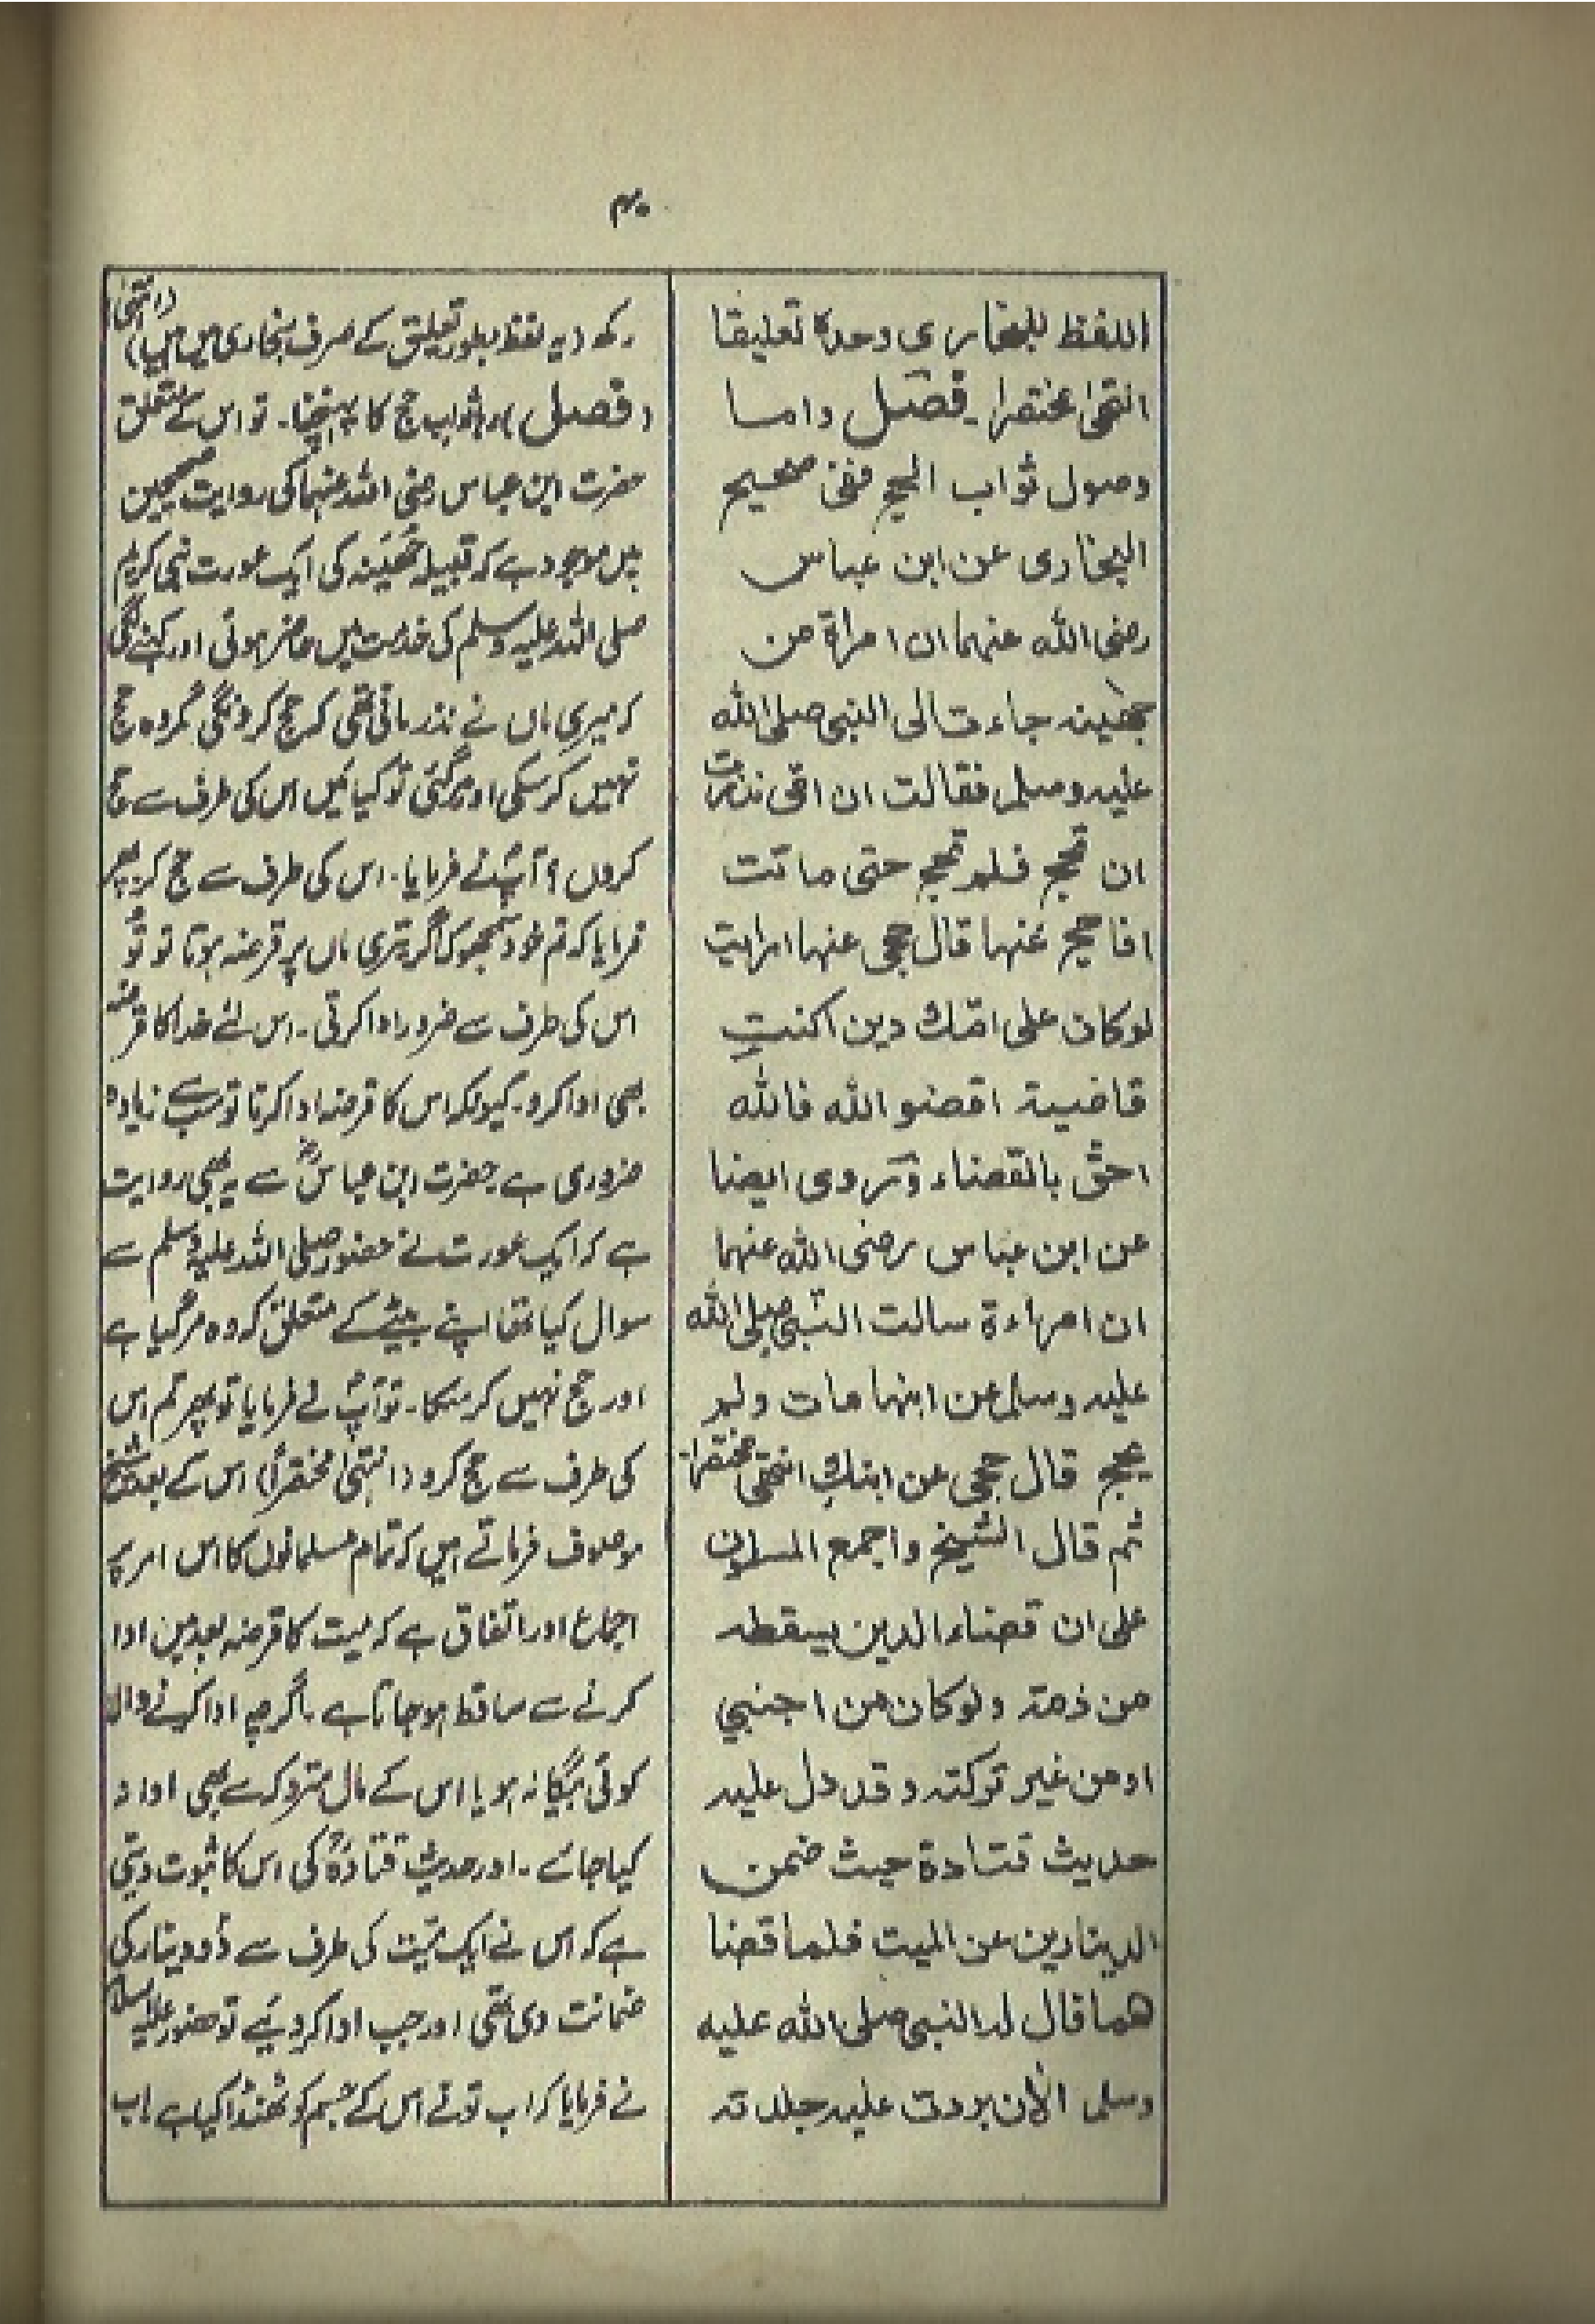 ۴۰
اللفظ للبخاری وحدہ تعلیقا
انتھٰی مختصرا۔ فصل واما
وصول ثواب الحج ففی صحیح
البخاری عن ابن عباس
رضی اللہ عنہما ان امراۃ من
جھینہ جاءت الی النبی صلی اللہ
علیہ وسلم فقالت ان امی نذرت
ان تحج فلم تحج حتی ماتت
افاحج عنہا قال حجی عنہا ارایت
لو کان علی امک دین اکنتِ
قاضیۃ اقضو اللہ فاللہ
احق بالقضاء وروی ایضا
عن ابن عباس رضی اللہ عنہما
ان امراءۃ سالت النبی صلی اللہ
علیہ وسلم عن ابنہا مات ولم
یحج قال حجی عن ابنکِ انتھی مختصرا
ثم قال الشیخ واجمع المسلمون
علی ان قضاء الدین یسقطہ
من ذمتہ ولو کان من اجنبی
او من غیر ترکتہ وقد دل علیہ
حدیث قتادۃ حیث ضمن
الدینارین عن المیت فلما قضا
ھما قال لہ النبی صلی اللہ علیہ
وسلم الاٰن بردت علیہ جلدتہ
رکھ (یہ لفظ بطور تعلیق کے صرف بخاری میں ہیں) (انتھٰی)
(فصل) رہا ثواب حج کا پہنچنا۔ تو اس کے متعلق
حضرت ابن عباس رضی اللہ عنہما کی روایت صحیحین
میں موجود ہے کہ قبیلہ جُھَینہ کی ایک عورت نبی کریم
صلی اللہ علیہ وسلم کی خدمت میں حاضر ہوئی اور کہنے لگی
کہ میری ماں نے نذر مانی تھی کہ حج کرونگی مگر وہ حج
نہیں کر سکی اور مر گئی تو کیا مَیں اس کی طرف سے حج
کروں؟ آپؐ نے فرمایا۔ اس کی طرف سے حج کر۔ پھر
فرمایا کہ تم خود سمجھو کہ اگر تیری ماں پر قرضہ ہوتا تو تُو
اس کی طرف سے ضرور ادا کرتی۔ اس لئے خدا کا قرضہ
بھی ادا کرو۔ کیونکہ اس کا قرضہ ادا کرنا تو سب سے زیادہ
ضروری ہے۔ حضرت ابن عباسؓ سے یہ بھی روایت
ہے کہ ایک عورت نے حضور صلی اللہ علیہ وسلم سے
سوال کیا تھا اپنے بیٹے کے متعلق کہ وہ مر گیا ہے
اور حج نہیں کر سکا۔ تو آپؐ نے فرمایا تو پھر تم اس
کی طرف سے حج کرو (انتہیٰ مختصراً) اس کے بعد شیخ
موصوف فرماتے ہیں کہ تمام مسلمانوں کا اس امر پر
اجماع اور اتفاق ہے کہ میت کا قرضہ بعد میں ادا
کرنے سے ساقط ہو جاتا ہے۔ اگرچہ ادا کرنے والا
کوئی بیگانہ ہو یا اس کے مال متروکہ سے بھی ادا نہ
کیا جائے۔ اور حدیث قتادہؓ کی اس کا ثبوت دیتی
ہے کہ اس نے ایک میّت کی طرف سے دو دینار کی
ضمانت دی تھی اور جب ادا کر دیئے تو حضور علیہ السلام
نے فرمایا کہ اب تونے اس کے جسم کو ٹھنڈا کیا ہے